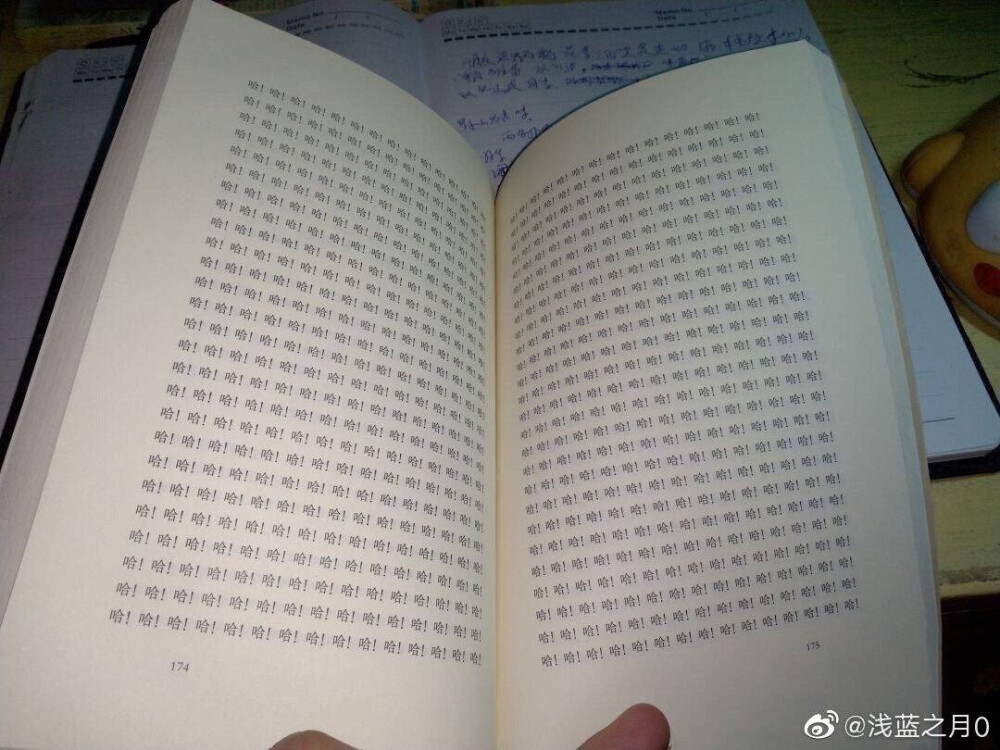 哈！哈！哈！哈！哈！哈！哈！哈！哈！
哈！哈！哈！哈！哈！哈！哈！哈！哈！哈！哈！哈！哈！哈！
哈！哈！哈！哈！哈！哈！哈！哈！哈！哈！哈！哈！哈！哈！
哈！哈！哈！哈！哈！哈！哈！哈！哈！哈！哈！哈！哈！哈！
哈！哈！哈！哈！哈！哈！哈！哈！哈！哈！哈！哈！哈！哈！
哈！哈！哈！哈！哈！哈！哈！哈！哈！哈！哈！哈！哈！哈！
哈！哈！哈！哈！哈！哈！哈！哈！哈！哈！哈！哈！哈！哈！
哈！哈！哈！哈！哈！哈！哈！哈！哈！哈！哈！哈！哈！哈！
哈！哈！哈！哈！哈！哈！哈！哈！哈！哈！哈！哈！哈！哈！
哈！哈！哈！哈！哈！哈！哈！哈！哈！哈！哈！哈！哈！哈！
哈！哈！哈！哈！哈！哈！哈！哈！哈！哈！哈！哈！哈！哈！
哈！哈！哈！哈！哈！哈！哈！哈！哈！哈！哈！哈！哈！哈！
哈！哈！哈！哈！哈！哈！哈！哈！哈！哈！哈！哈！哈！哈！
哈！哈！哈！哈！哈！哈！哈！哈！哈！哈！哈！哈！哈！哈！
哈！哈！哈！哈！哈！哈！哈！哈！哈！哈！哈！哈！哈！哈！
哈！哈！哈！哈！哈！哈！哈！哈！哈！哈！哈！哈！哈！哈！
哈！哈！哈！哈！哈！哈！哈！哈！哈！哈！哈！哈！哈！哈！
哈！哈！哈！哈！哈！哈！哈！哈！哈！哈！哈！哈！哈！哈！
哈！哈！哈！哈！哈！哈！哈！哈！哈！哈！哈！哈！哈！哈！
哈！哈！哈！哈！哈！哈！哈！哈！哈！哈！哈！哈！哈！哈！
哈！哈！哈！哈！哈！哈！哈！哈！哈！哈！哈！哈！哈！哈！
哈！哈！哈！哈！哈！哈！哈！哈！哈！哈！哈！哈！哈！哈！
哈！哈！哈！哈！哈！哈！哈！哈！哈！哈！哈！哈！哈！哈！
哈！哈！哈！哈！哈！哈！哈！哈！哈！哈！哈！哈！哈！哈！
哈！哈！哈！哈！哈！哈！哈！哈！哈！哈！哈！哈！哈！哈！
哈！哈！哈！哈！哈！哈！哈！哈！哈！哈！哈！哈！哈！哈！
174
哈！哈！哈！哈！哈！哈！哈！哈！哈！哈！哈！哈！哈！哈！
哈！哈！哈！哈！哈！哈！哈！哈！哈！哈！哈！哈！哈！哈！
哈！哈！哈！哈！哈！哈！哈！哈！哈！哈！哈！哈！哈！哈！
哈！哈！哈！哈！哈！哈！哈！哈！哈！哈！哈！哈！哈！哈！
哈！哈！哈！哈！哈！哈！哈！哈！哈！哈！哈！哈！哈！哈！
哈！哈！哈！哈！哈！哈！哈！哈！哈！哈！哈！哈！哈！哈！
哈！哈！哈！哈！哈！哈！哈！哈！哈！哈！哈！哈！哈！哈！
哈！哈！哈！哈！哈！哈！哈！哈！哈！哈！哈！哈！哈！哈！
哈！哈！哈！哈！哈！哈！哈！哈！哈！哈！哈！哈！哈！哈！
哈！哈！哈！哈！哈！哈！哈！哈！哈！哈！哈！哈！哈！哈！
哈！哈！哈！哈！哈！哈！哈！哈！哈！哈！哈！哈！哈！哈！
哈！哈！哈！哈！哈！哈！哈！哈！哈！哈！哈！哈！哈！哈！
哈！哈！哈！哈！哈！哈！哈！哈！哈！哈！哈！哈！哈！哈！
哈！哈！哈！哈！哈！哈！哈！哈！哈！哈！哈！哈！哈！哈！
哈！哈！哈！哈！哈！哈！哈！哈！哈！哈！哈！哈！哈！哈！
哈！哈！哈！哈！哈！哈！哈！哈！哈！哈！哈！哈！哈！哈！
哈！哈！哈！哈！哈！哈！哈！哈！哈！哈！哈！哈！哈！哈！
哈！哈！哈！哈！哈！哈！哈！哈！哈！哈！哈！哈！哈！哈！
哈！哈！哈！哈！哈！哈！哈！哈！哈！哈！哈！哈！哈！哈！
哈！哈！哈！哈！哈！哈！哈！哈！哈！哈！哈！哈！哈！哈！
哈！哈！哈！哈！哈！哈！哈！哈！哈！哈！哈！哈！哈！哈！
哈！哈！哈！哈！哈！哈！哈！哈！哈！哈！哈！哈！哈！哈！
哈！哈！哈！哈！哈！哈！哈！哈！哈！哈！哈！哈！哈！哈！
哈！哈！哈！哈！哈！哈！哈！哈！哈！哈！哈！哈！哈！哈！
哈！哈！哈！哈！哈！哈！哈！哈！哈！哈！哈！哈！哈！哈！
哈！哈！哈！哈！哈！哈！哈！哈！哈！哈！哈！哈！哈！哈！
175
Memo No.
Date
Memo No.
Date
@浅蓝之月0